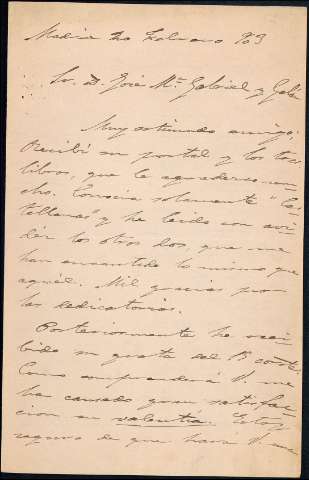 Madrid 20 Febrero 903
Sr. D. José Mª Gabriel y Galán
Muy estimado amigo:
Recibí su postal y los tres
libros, que le agradezco mu-
cho. Conocía solamente "Cas-
tellanas" y he leído con avi-
déz los otros dos, que me
han encantado lo mismo que
aquél. Mil gracias por
las dedicatorias.
Posteriormente he reci-
bido su grata del 15 corrte.
Como comprenderá V. me
ha causado gran satisfac-
cion su valentía. Estoy
seguro de que hará V. una